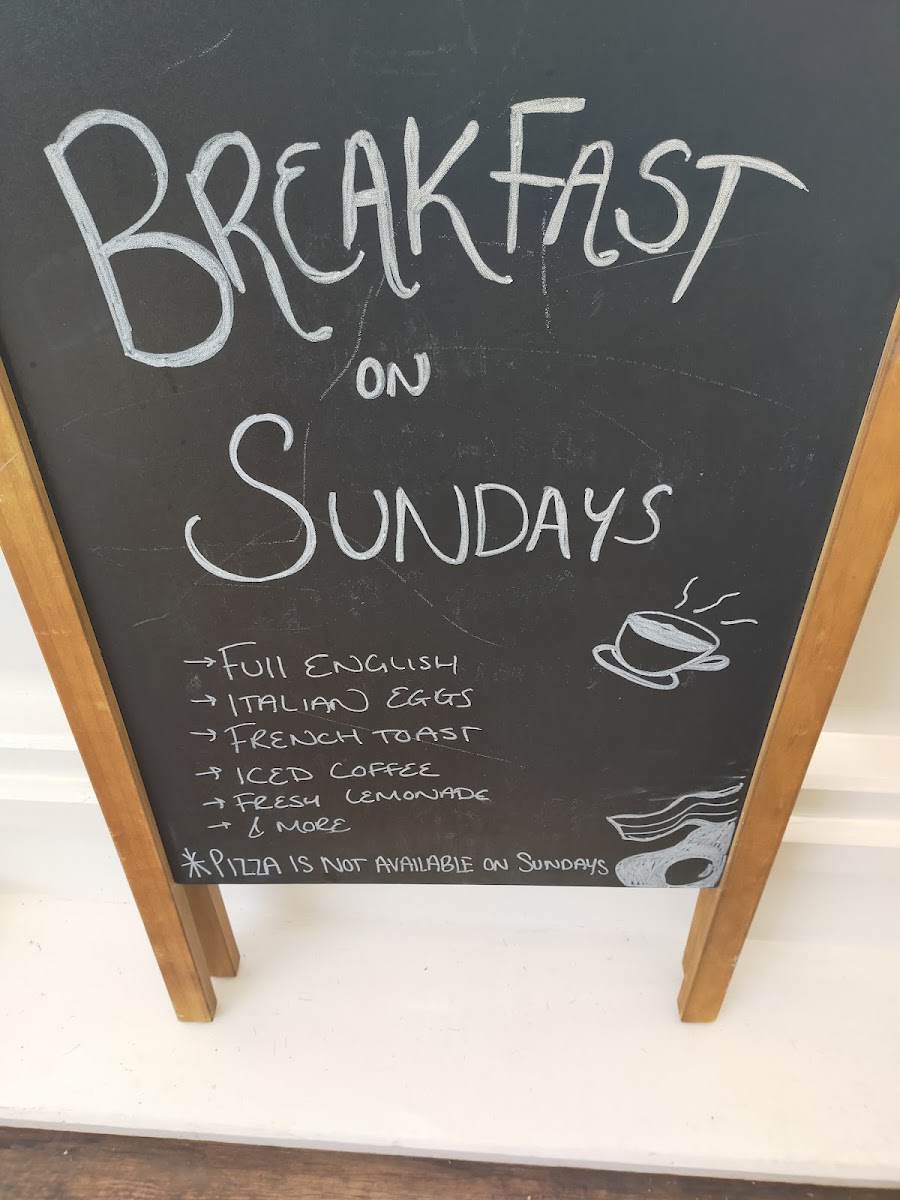 BREAKFAST
ON
SUNDAYS
→ FUll ENGLISH
→ ITALIAN EGGS
→ FRENCH TOAST
→ ICED COFFEE
→ FRESH LEMONADE
→ & MORE
* PIZZA IS NOT AVAILABLE ON SUNDAYS